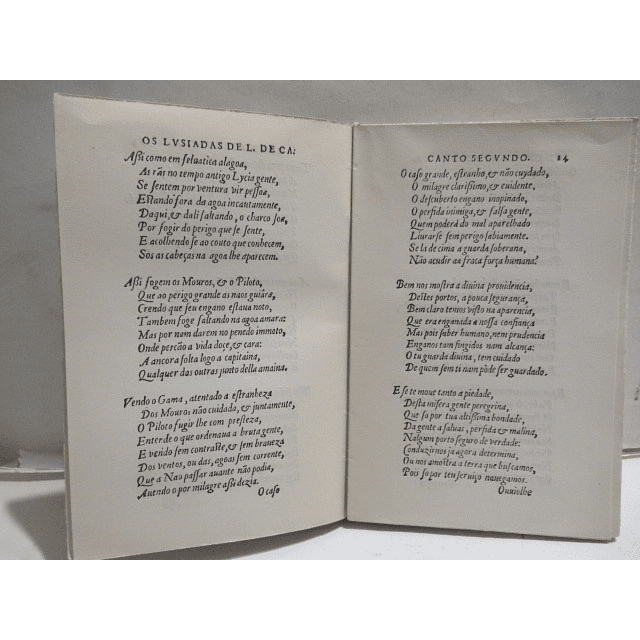 OS LVSIADAS DE L. DE CA:
Aſſi como em ſeluatica alagoa,
As rãs no tempo antigo Lycia gente,
Se ſentem por ventura vir peſſoa,
Eſtando fora da agoa incautamente,
Daqui, & dali ſaltando, o charco ſoa,
Por fogir do perigo que ſe ſente,
E acolhendo ſe ao couto que conhecem,
Sòs as cabeças na agoa lhe aparecem.
Aſſi fogem os Mouros, & o Piloto,
Que ao perigo grande as naos guiâra,
Crendo que ſeu engano eſtaua noto,
Tambem foge ſaltando na agoa amara:
Mas por nam darem no penedo immoto,
Onde percão a vida doçe, & cara:
A ancora ſolta logo a capitaina,
Qualquer das outras junto della amaina.
Vendo o Gama, atentado a eſtranheza
Dos Mouros, não cuidada, & juntamente,
O Piloto fugir lhe com preſteza,
Entende o que ordenaua a bruta gente,
E vendo ſem contraſte, & ſem braueza
Dos ventos, ou das agoas ſem corrente,
Que a Nao paſſar auante não podia,
Auendo o por milagre aſſi dezia.
O caſo
CANTO SEGVNDO. 24
O caſo grande, eſtranho, & não cuydado,
O milagre clariſſimo, & euidente,
O deſcuberto engano inopinado,
O perfida inimiga, & falſa gente,
Quem poderâ do mal aparelhado
Liurarſe ſem perigo ſabiamente.
Se la de cima a guarda ſoberana,
Não acudir aa fraca força humana?
Bem nos moſtra a diuina prouidencia,
Deſtes portos, a pouca ſegurança,
Bem claro temos viſto na aparencia,
Que era enganada a noſſa confiança
Mas pois ſaber humano, nem prudencia
Enganos tam fingidos nam alcança:
O tu guarda diuina, tem cuidado
De quem ſem ti nam pôde ſer guardado.
E ſe te moue tanto a piedade,
Deſta miſera gente peregrina,
Que ſo por tua altiſſima bondade,
Da gente a ſaluas, perfida & malina,
Nalgum porto ſeguro de verdade:
Conduzirnos ja agora determina,
Ou nos amoſtra a terra que buſcamos,
Pois ſo por teu ſeruiço nauegamos.
Ouuiolhe